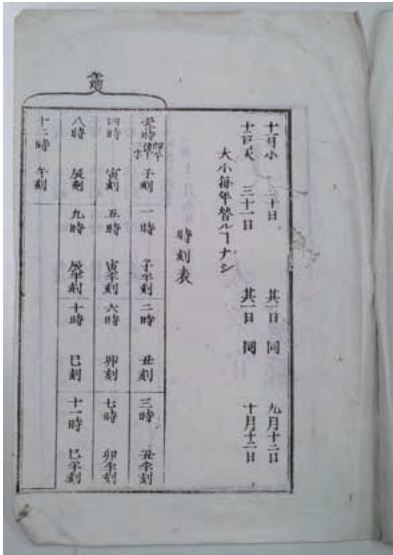 十一月小 三十日 其一日 同 九月十二日
十二月大 三十一日 其一日 同 十月十二日
大小毎年替ルヿナシ
時刻表
午前
零時 子刻 一時 子半刻 二時 丑刻 三時 丑半刻
四時 寅刻 五時 寅半刻 六時 卯刻 七時 卯半刻
八時 辰刻 九時 辰半刻 十時 巳刻 十一時 巳半刻
十二時 午刻